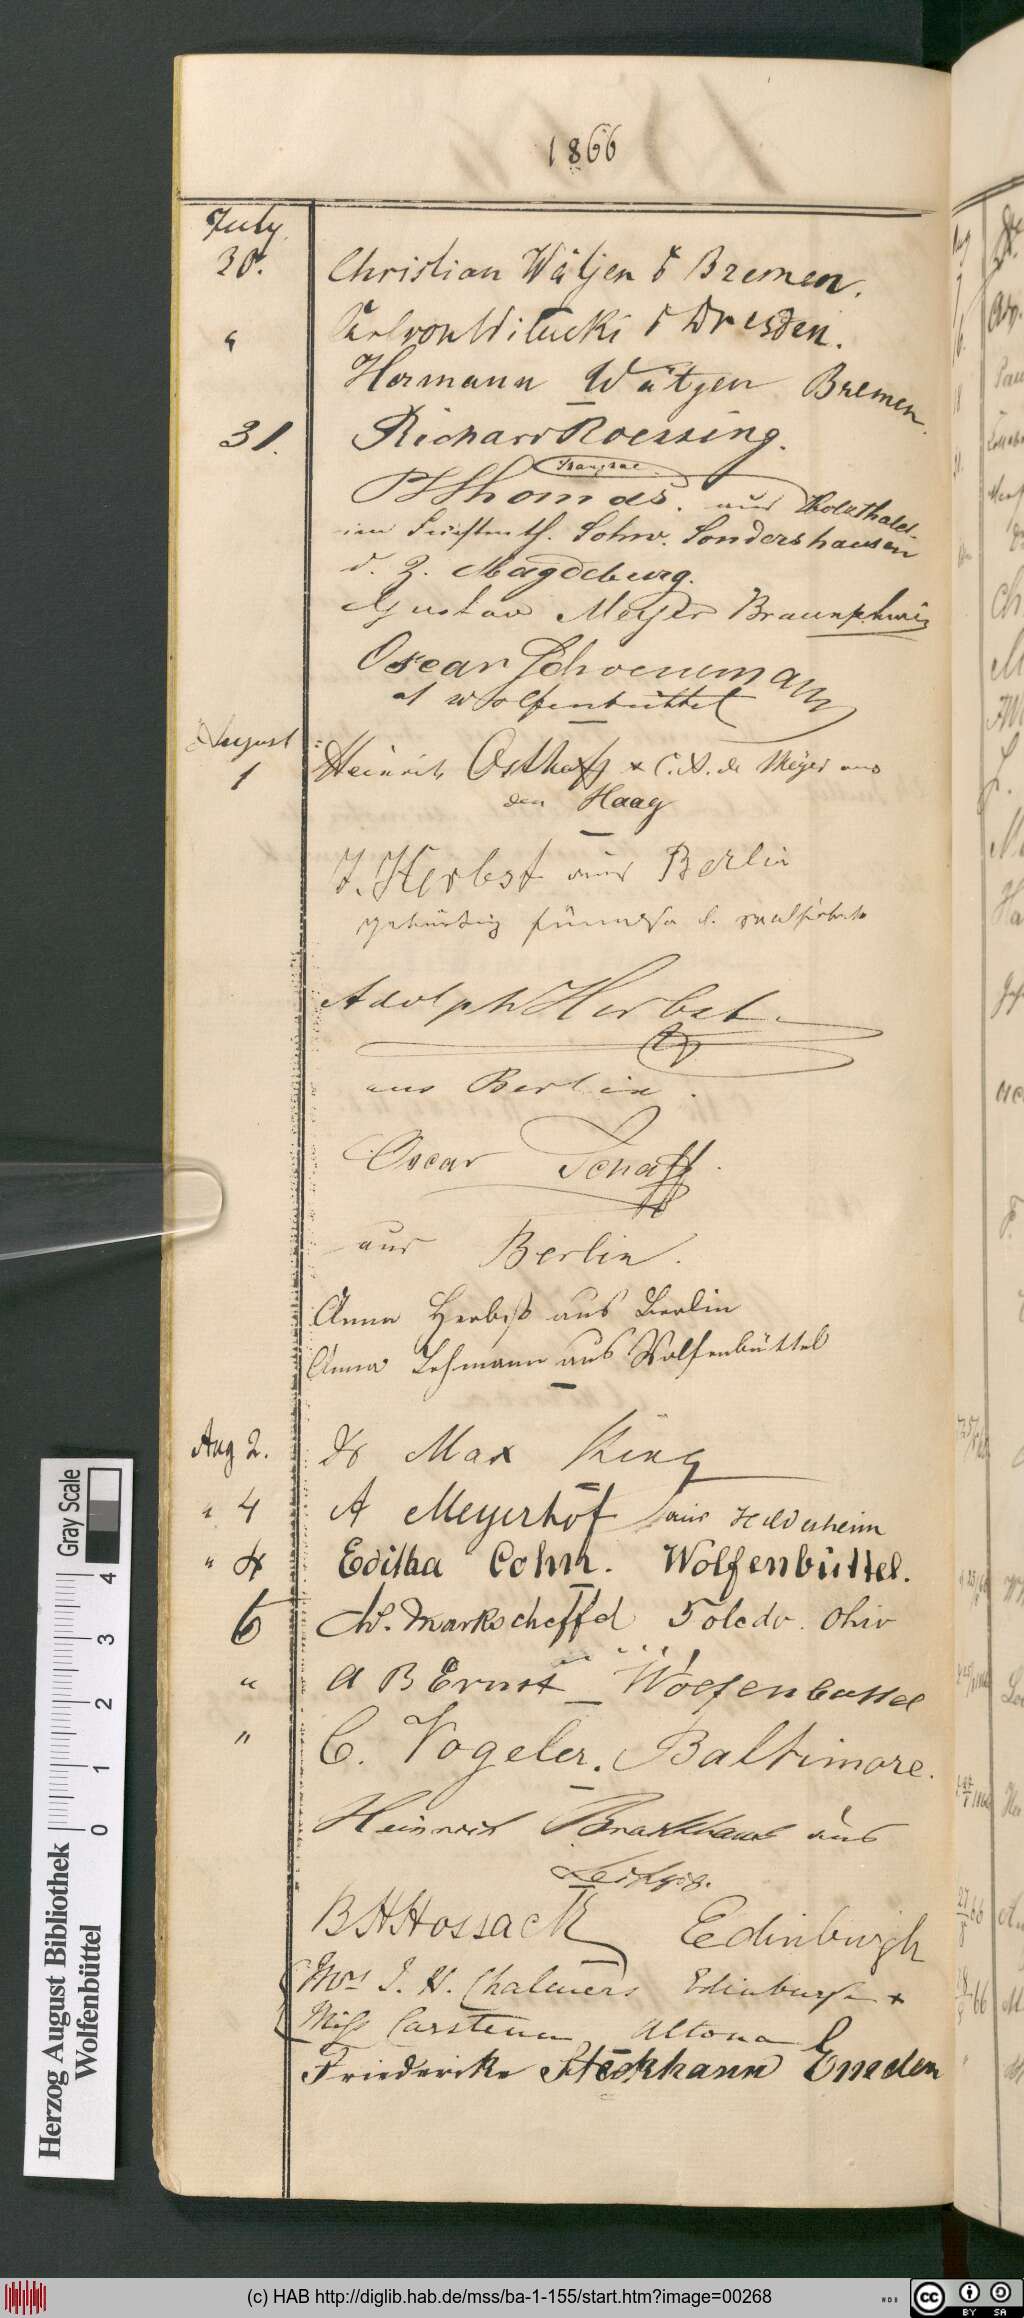 1866
July
30. Christian Wätjen v Bremen.
" Carl von Witucki v Dresden.
Hermann Wätjen Bremen.
31. Richard Roessing.
Thomas. aus Holzthalel-
im Fürstenth. Schw. Sondershausen
d. Z. Magdeburg.
Gustav Meyer Braunschwig
Oscar Schoenemann
a/ Wolfenbüttel
August
1 Heinrich Osthoff + C. A. de Meyer aus
den Haag
J. Herbst aus Berlin
gebürtig
Adolph Herbst.
aus Berlin.
Oscar Schaff.
aus Berlin.
Anna Herbst aus Berlin
Anna Lehmann aus Wolfenbüttel
Aug 2. Dr Max Ring
" 4 A Meyerhof aus Hildesheim
" 4 Editha Cohn. Wolfenbüttel.
6 W. Markscheffel Toledo. Ohio
" A B Ernst Wolfenbüttel
" C. Vogeler. Baltimore.
Heinrich Brockhaus aus
Leipzig.
B H Hossack Edinburgh
Mrs J. H. Chalmers Edinburgh +
Miss Carstenn Altona
Friederike Stöckhann Emden
Herzog August Bibliothek
Wolfenbüttel
Gray Scale
0 1 2 3 4
(c) HAB http://diglib.hab.de/mss/ba-1-155/start.htm?image=00268
WDB
cc BY SA